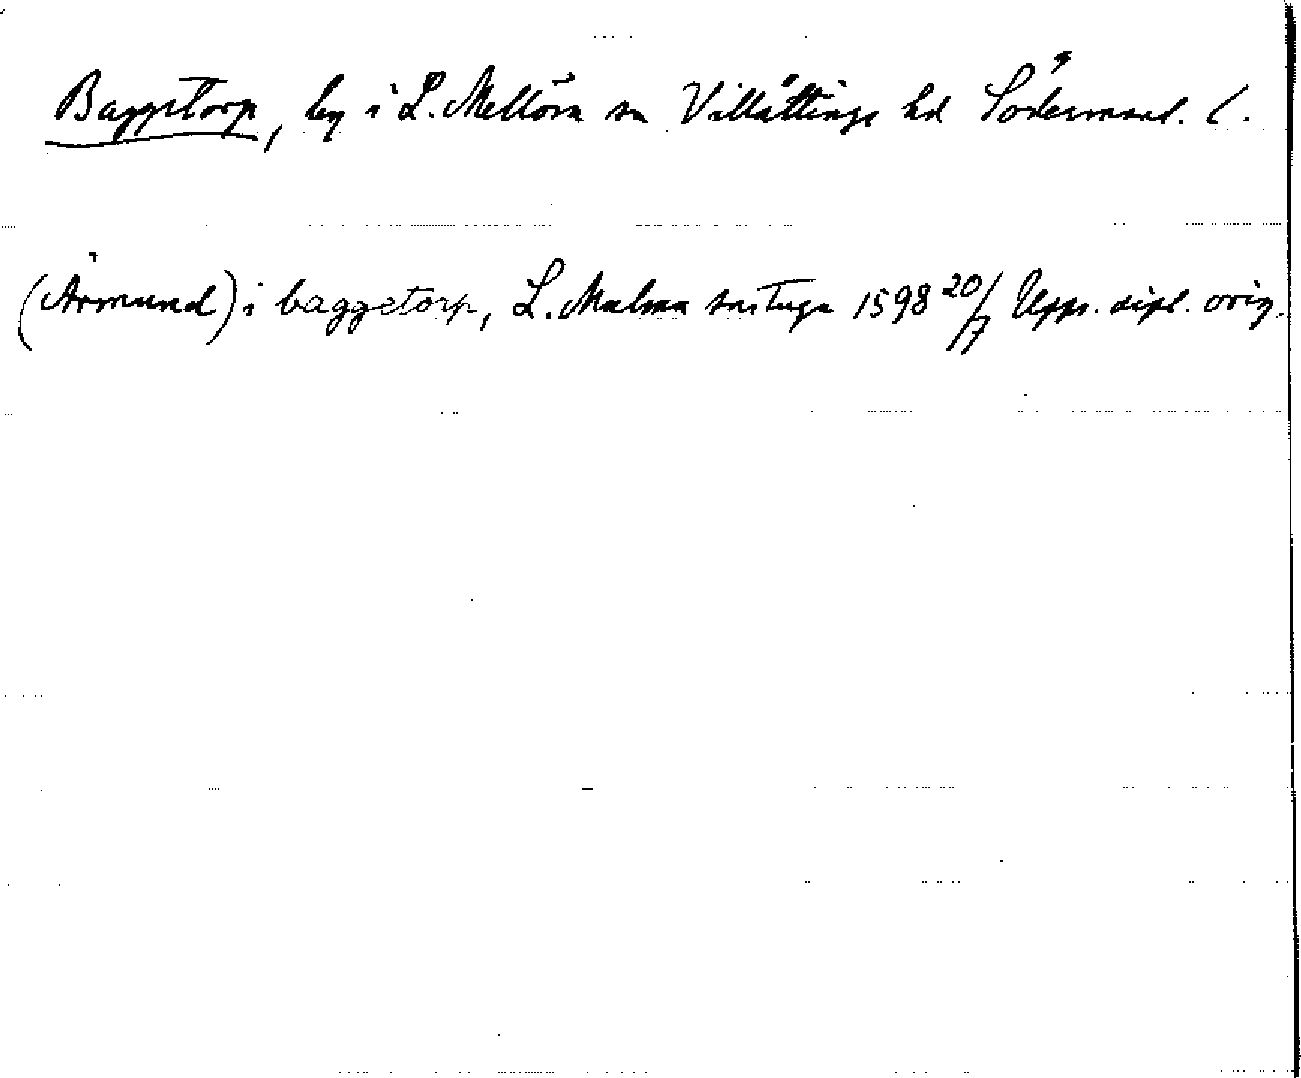 Baggetorp, by i L. Mellösa sn Villåttinge hd Södermanl. l.
(Åmund) i baggetorp, L. Malma snstuga 1598 20/7 Upps. dipl. orig.